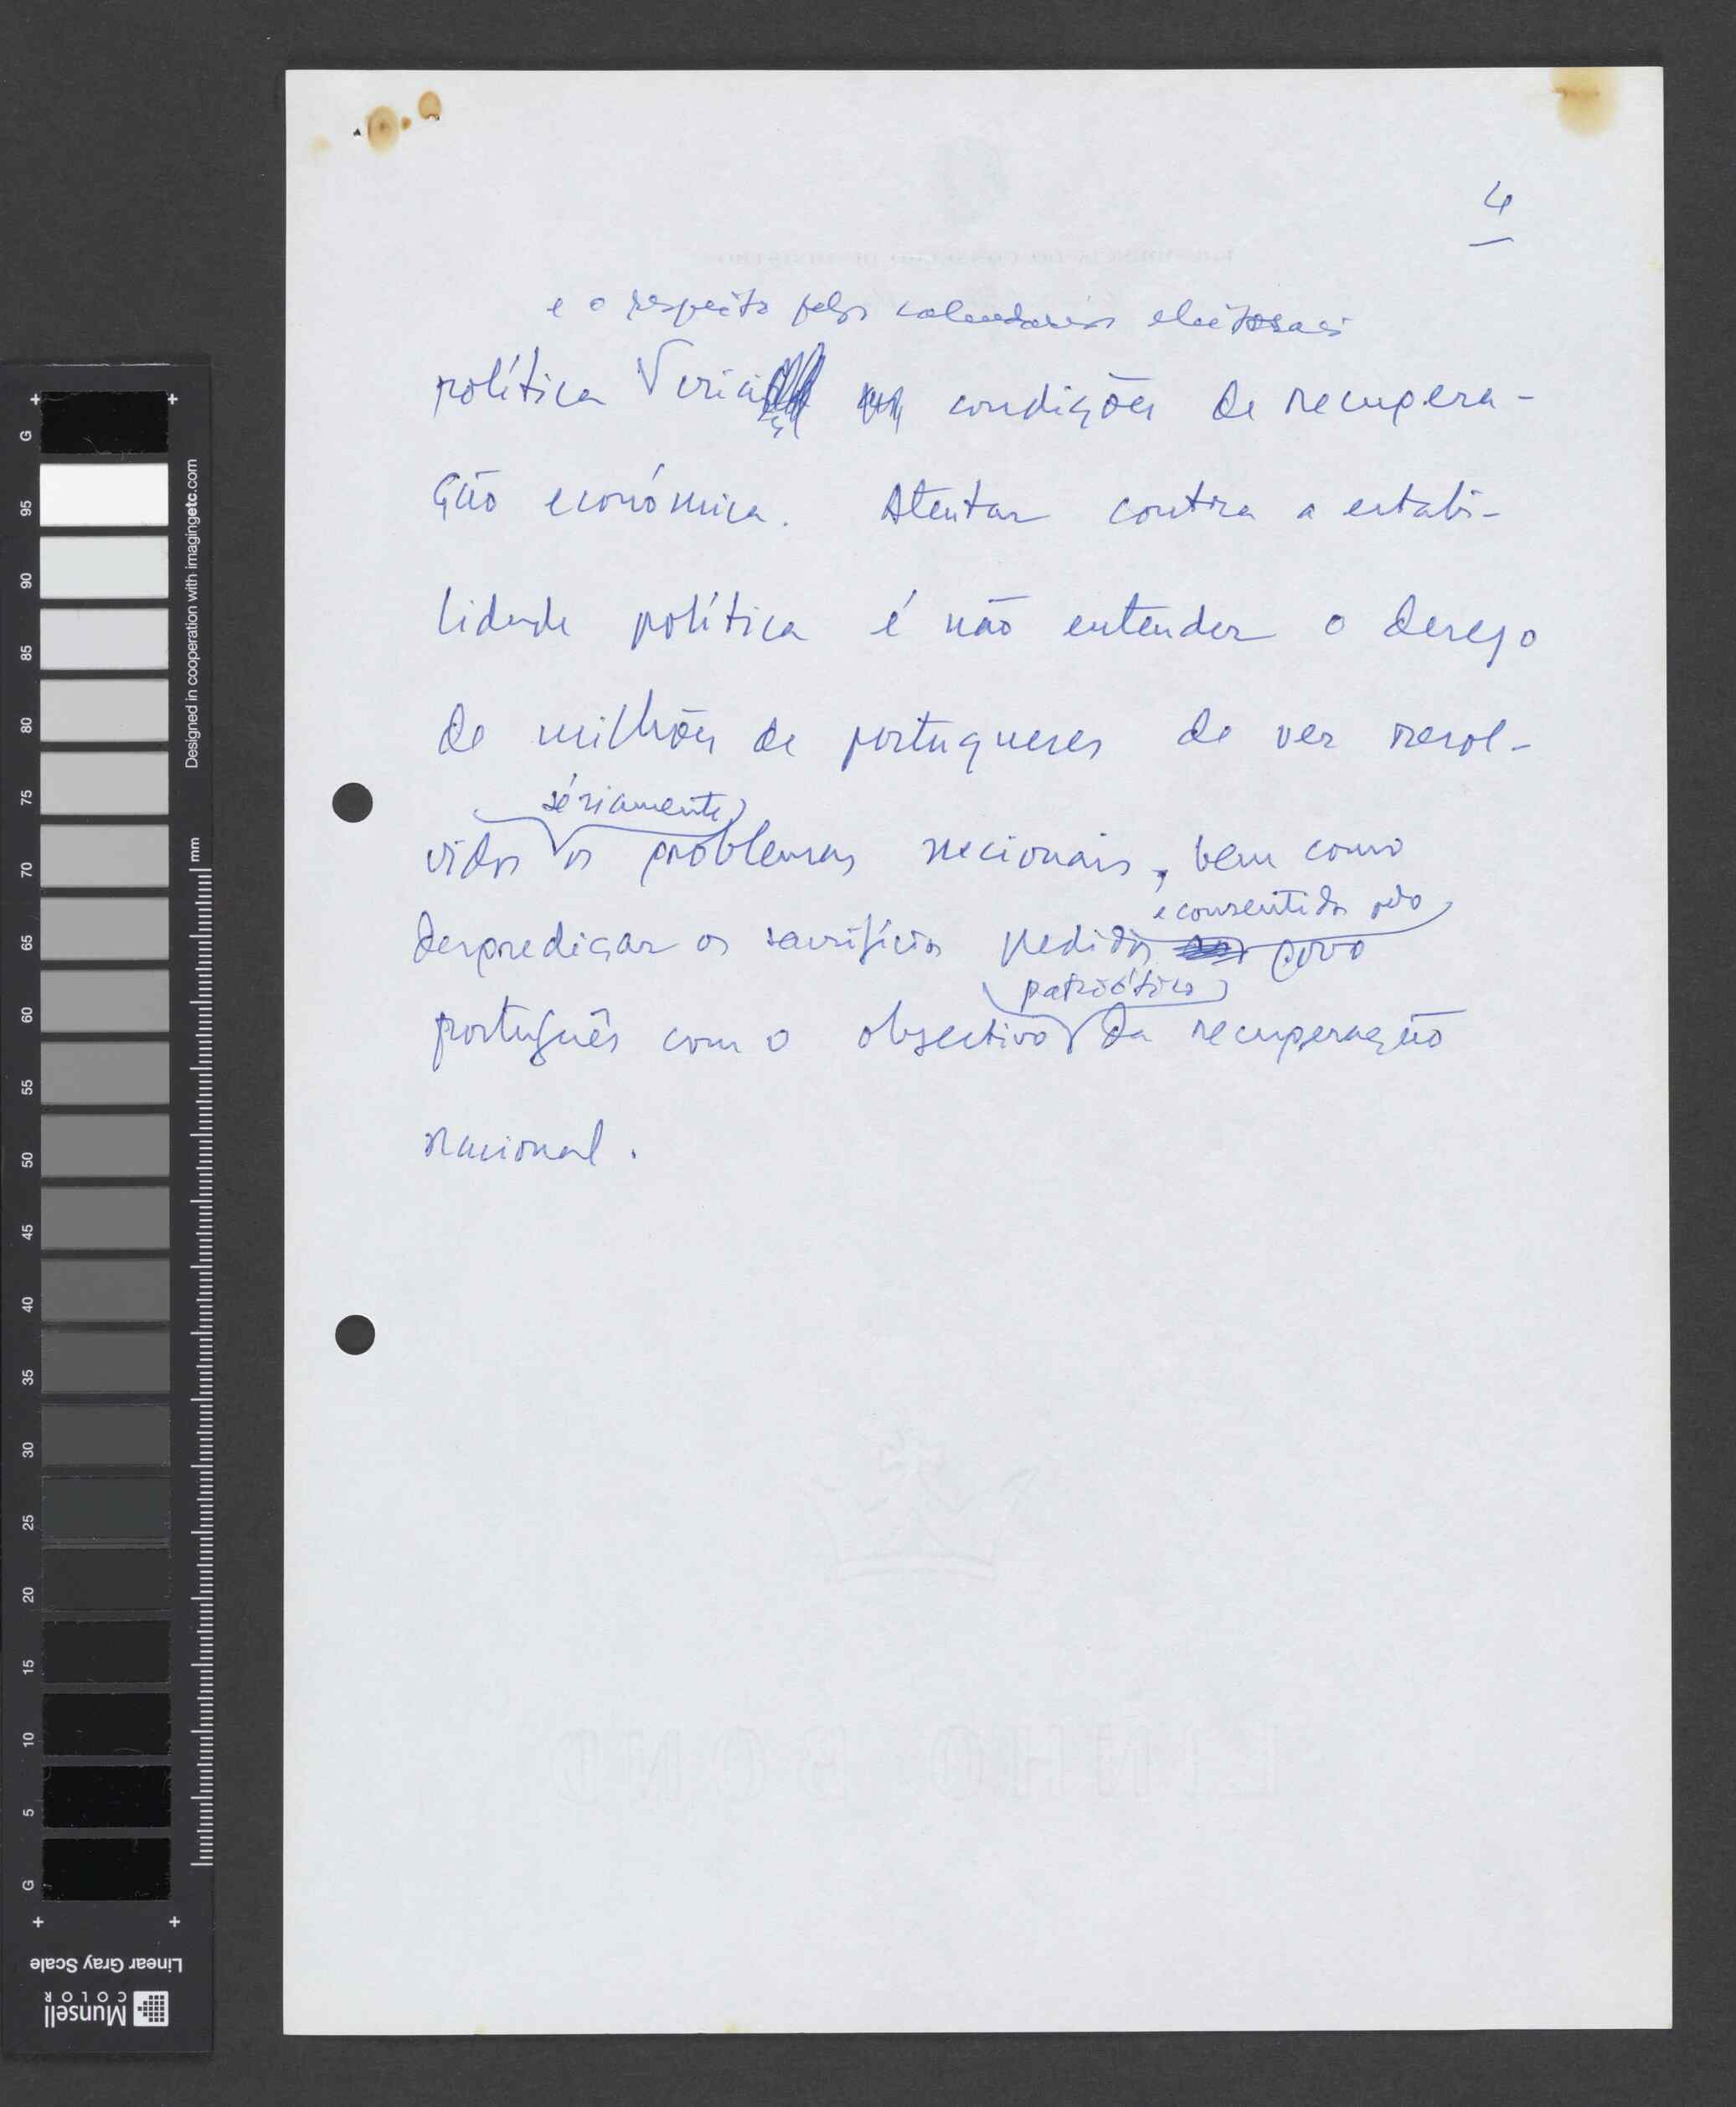 4
e o respeito pelos calendários eleitorais
política cria condições de recupera-
ção económica. Atentar contra a estabi-
lidade política é não entender o desejo
de milhões de portugueses de ver resol-
seriamente
vidos os problemas nacionais, bem como
e consentidos pelo
desprediçar os sacrifícios pedidos povo
patriótico
português com o objectivo da recuperação
nacional.
LINHO BOND
Designed in cooperation with imagingetc.com
mm
G
95
90
85
80
75
70
65
60
55
50
45
40
35
30
25
20
15
10
5
G
Linear Gray Scale
Munsell
COLOR